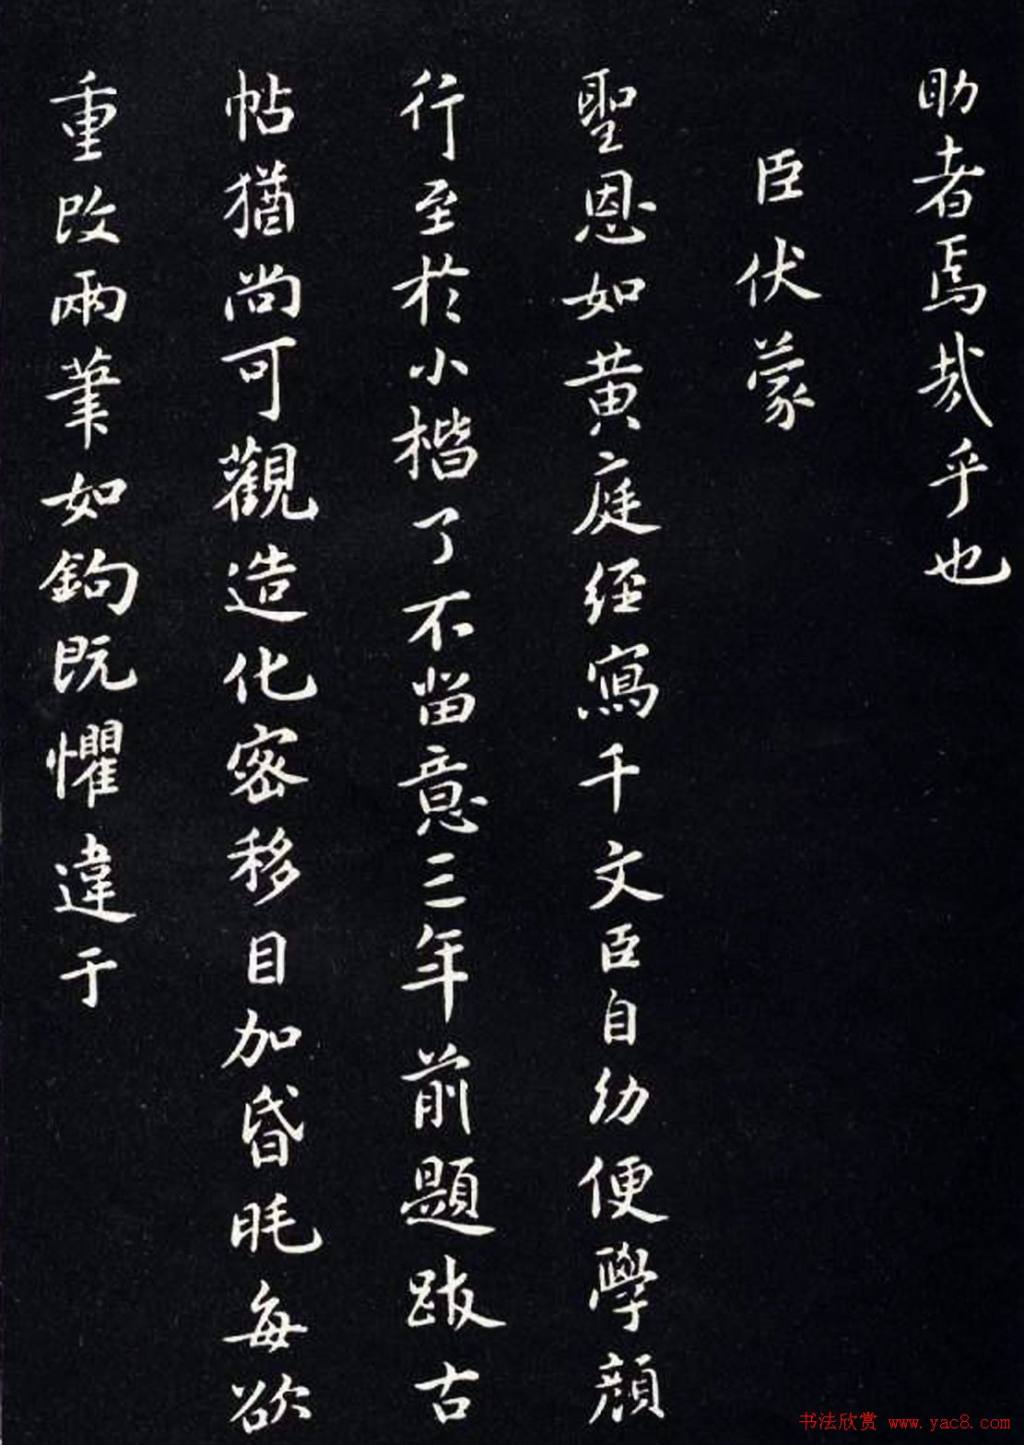 助者焉哉乎也
臣伏蒙
聖恩如黄庭經寫千文臣自幼便學顔
行至於小楷了不留意三年前題跋古
帖猶尚可觀造化密移目加昏眊每欲
重改兩筆如鉤既懼違于
书法欣赏 www.yac8.com